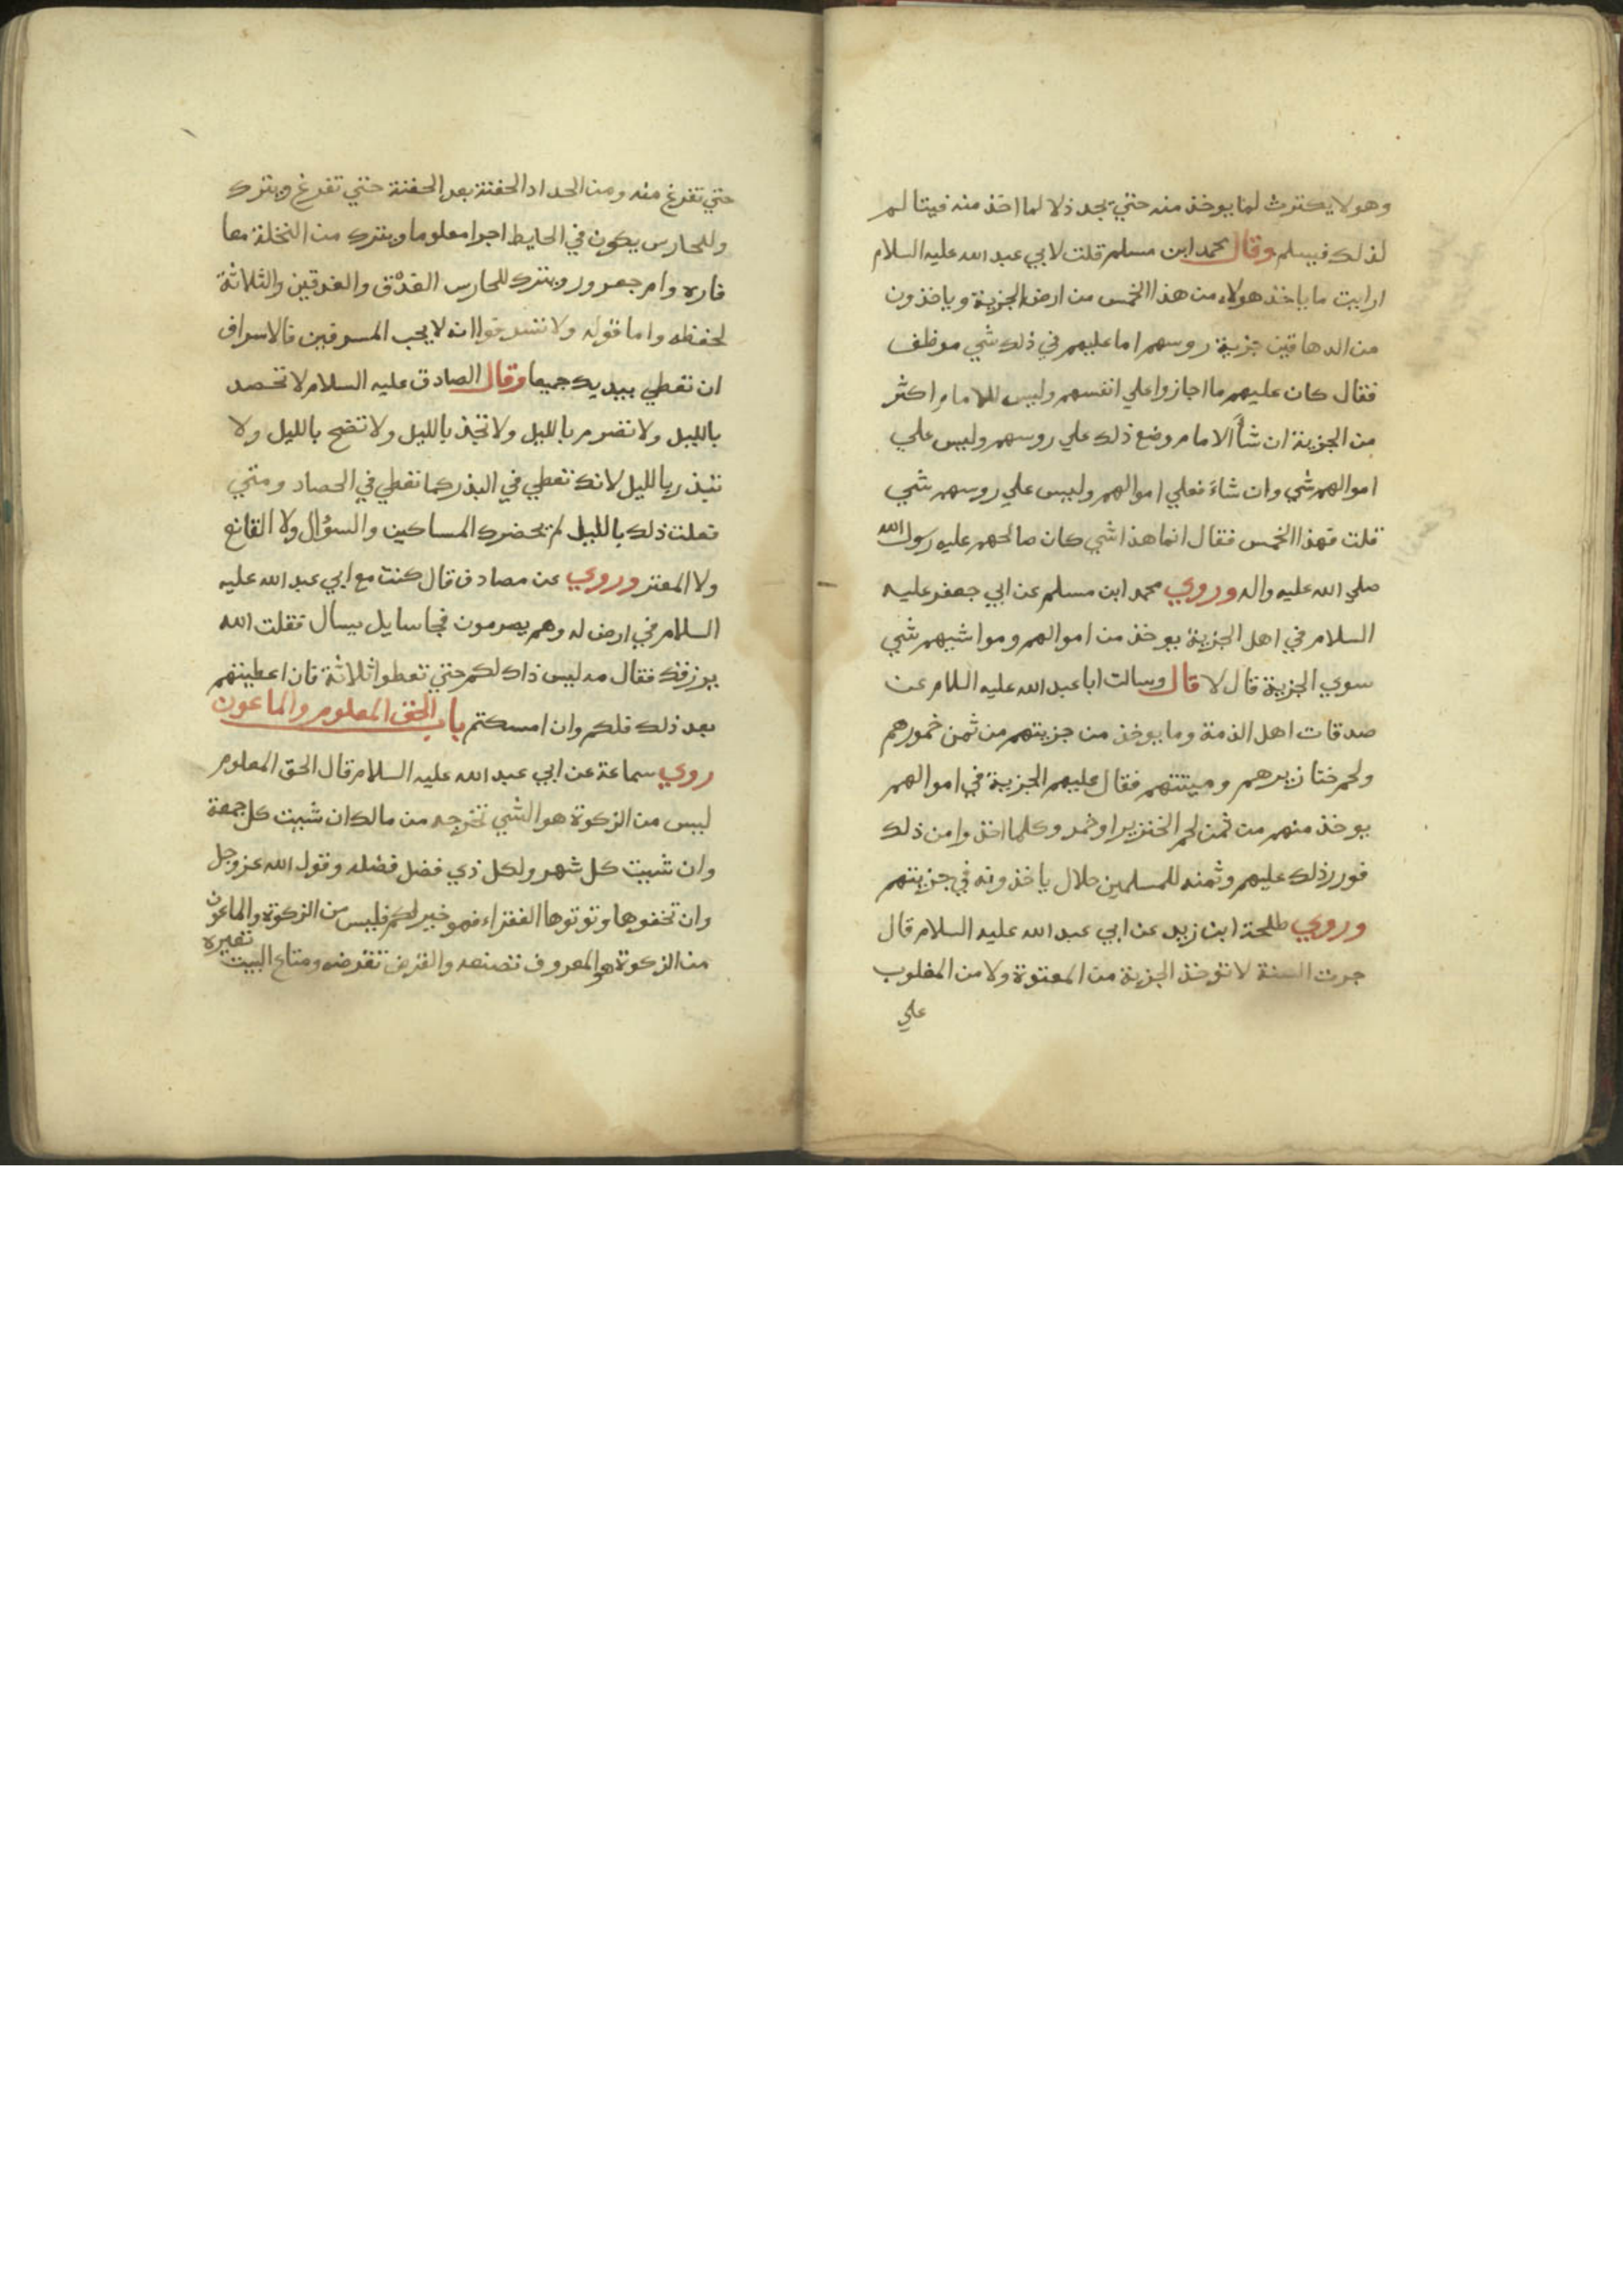 وهو لا يكترث لما يوخذ منه حتي يجد ذلا لما اخذ منه فيتالم
لذلك فيسلم وقال محمد ابن مسلم قلت لابي عبد الله عليه السلام
ارايت ما ياخذ هولاء من هذا الخمس من ارض الجزية وياخذون
من الدهاقين جزية روسهم اما عليهم في ذلك شي موظف
فقال كان عليهم ما اجازوا علي انفسهم وليس للامام اكثر
من الجزية ان شأ الامام وضع ذلك علي روسهم وليس علي
اموالهم شي وان شاء فعلي اموالهم وليس علي روسهم شي
قلت فهذا الخمس فقال انما هذا شي كان صالحهم عليه رسول الله
صلي الله عليه واله وروي محمد ابن مسلم عن ابي جعفر عليه
السلام في اهل الجزية يوخذ من اموالهم ومواشيهم شي
سوي الجزية قال لا قال وسالت ابا عبد الله عليه السلام عن
صدقات اهل الذمة وما يوخذ من جزيتهم من ثمن خمورهم
ولحم خنازيرهم وميتتهم فقال عليهم الجزية في اموالهم
يوخذ منهم من ثمن لحم الخنزير او خمر وكلما اخذوا من ذلك
فوزر ذلك عليهم وثمنه للمسلمين حلال ياخذونه في جزيتهم
وروي طلحة ابن زيد عن ابي عبد الله عليه السلام قال
جرت السنة لا توخذ الجزية من المعتوة ولا من المغلوب
علي
حتي تفرغ منه ومن الحداد الحفنة بعد الحفنة حتي تفرغ ويترك
وللحارس يكون في الحايط اجرا معلوما ويترك من النخلة معا
فاره وام جعرور ويترك للحارس العذق والعذقين والثلاثة
لحفظه واما قوله ولا تسرفوا انه لا يحب المسرفين فالاسراف
ان تعطي بيديك جميعا وقال الصادق عليه السلام لا تحصد
بالليل ولا تصرم بالليل ولا تجذ بالليل ولا تضح بالليل ولا
تبذر بالليل لانك تعطي في البذر كما تعطي في الحصاد ومتي
فعلت ذلك بالليل لم يحضرك المساكين والسؤال ولا القانع
ولا المعتر وروي عن مصادف قال كنت مع ابي عبد الله عليه
السلام في ارض له وهم يصرمون فجا سايل يسال فقلت الله
يرزقك فقال مه ليس ذاك لكم حتي تعطوا ثلاثة فان اعطيتهم
بعد ذلك فلكم وان امسكتم باب الحق المعلوم والماعون
روي سماعة عن ابي عبد الله عليه السلام قال الحق المعلوم
ليس من الزكوة هو الشي تخرجه من مالك ان شيت كل جمعة
وان شيت كل شهر ولكل ذي فضل فضله وقول الله عز وجل
وان تخفوها وتوتوها الفقراء فهو خير لكم فليس من الزكوة والماعون
من الزكوة هو المعروف تصنعه والقرض تقرضه ومتاع البيت تعيره